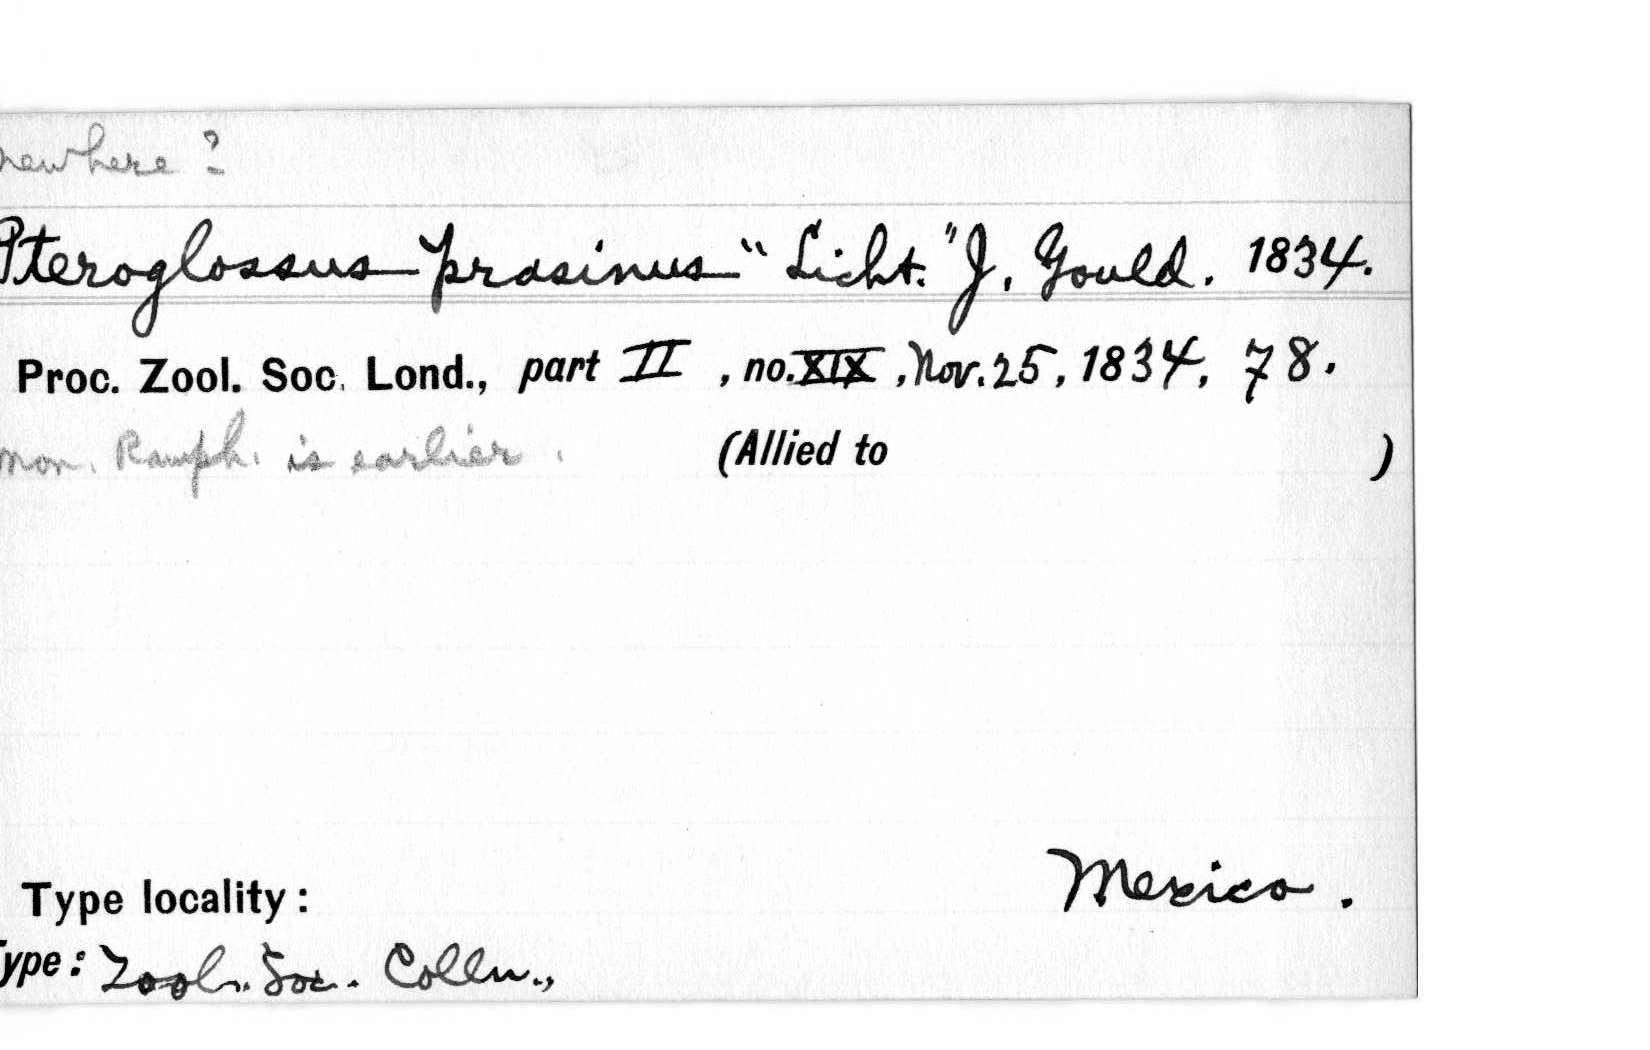 newhere?
Pteroglossus prasinus "Licht." J. Gould. 1834.
Proc. Zool. Soc. Lond., part II, no. XIX, Nov. 25, 1834, 78.
mon. Ramph. is earlier.
(Allied to )
Type locality: Mexico.
Type: Zool. Soc. Colln.,